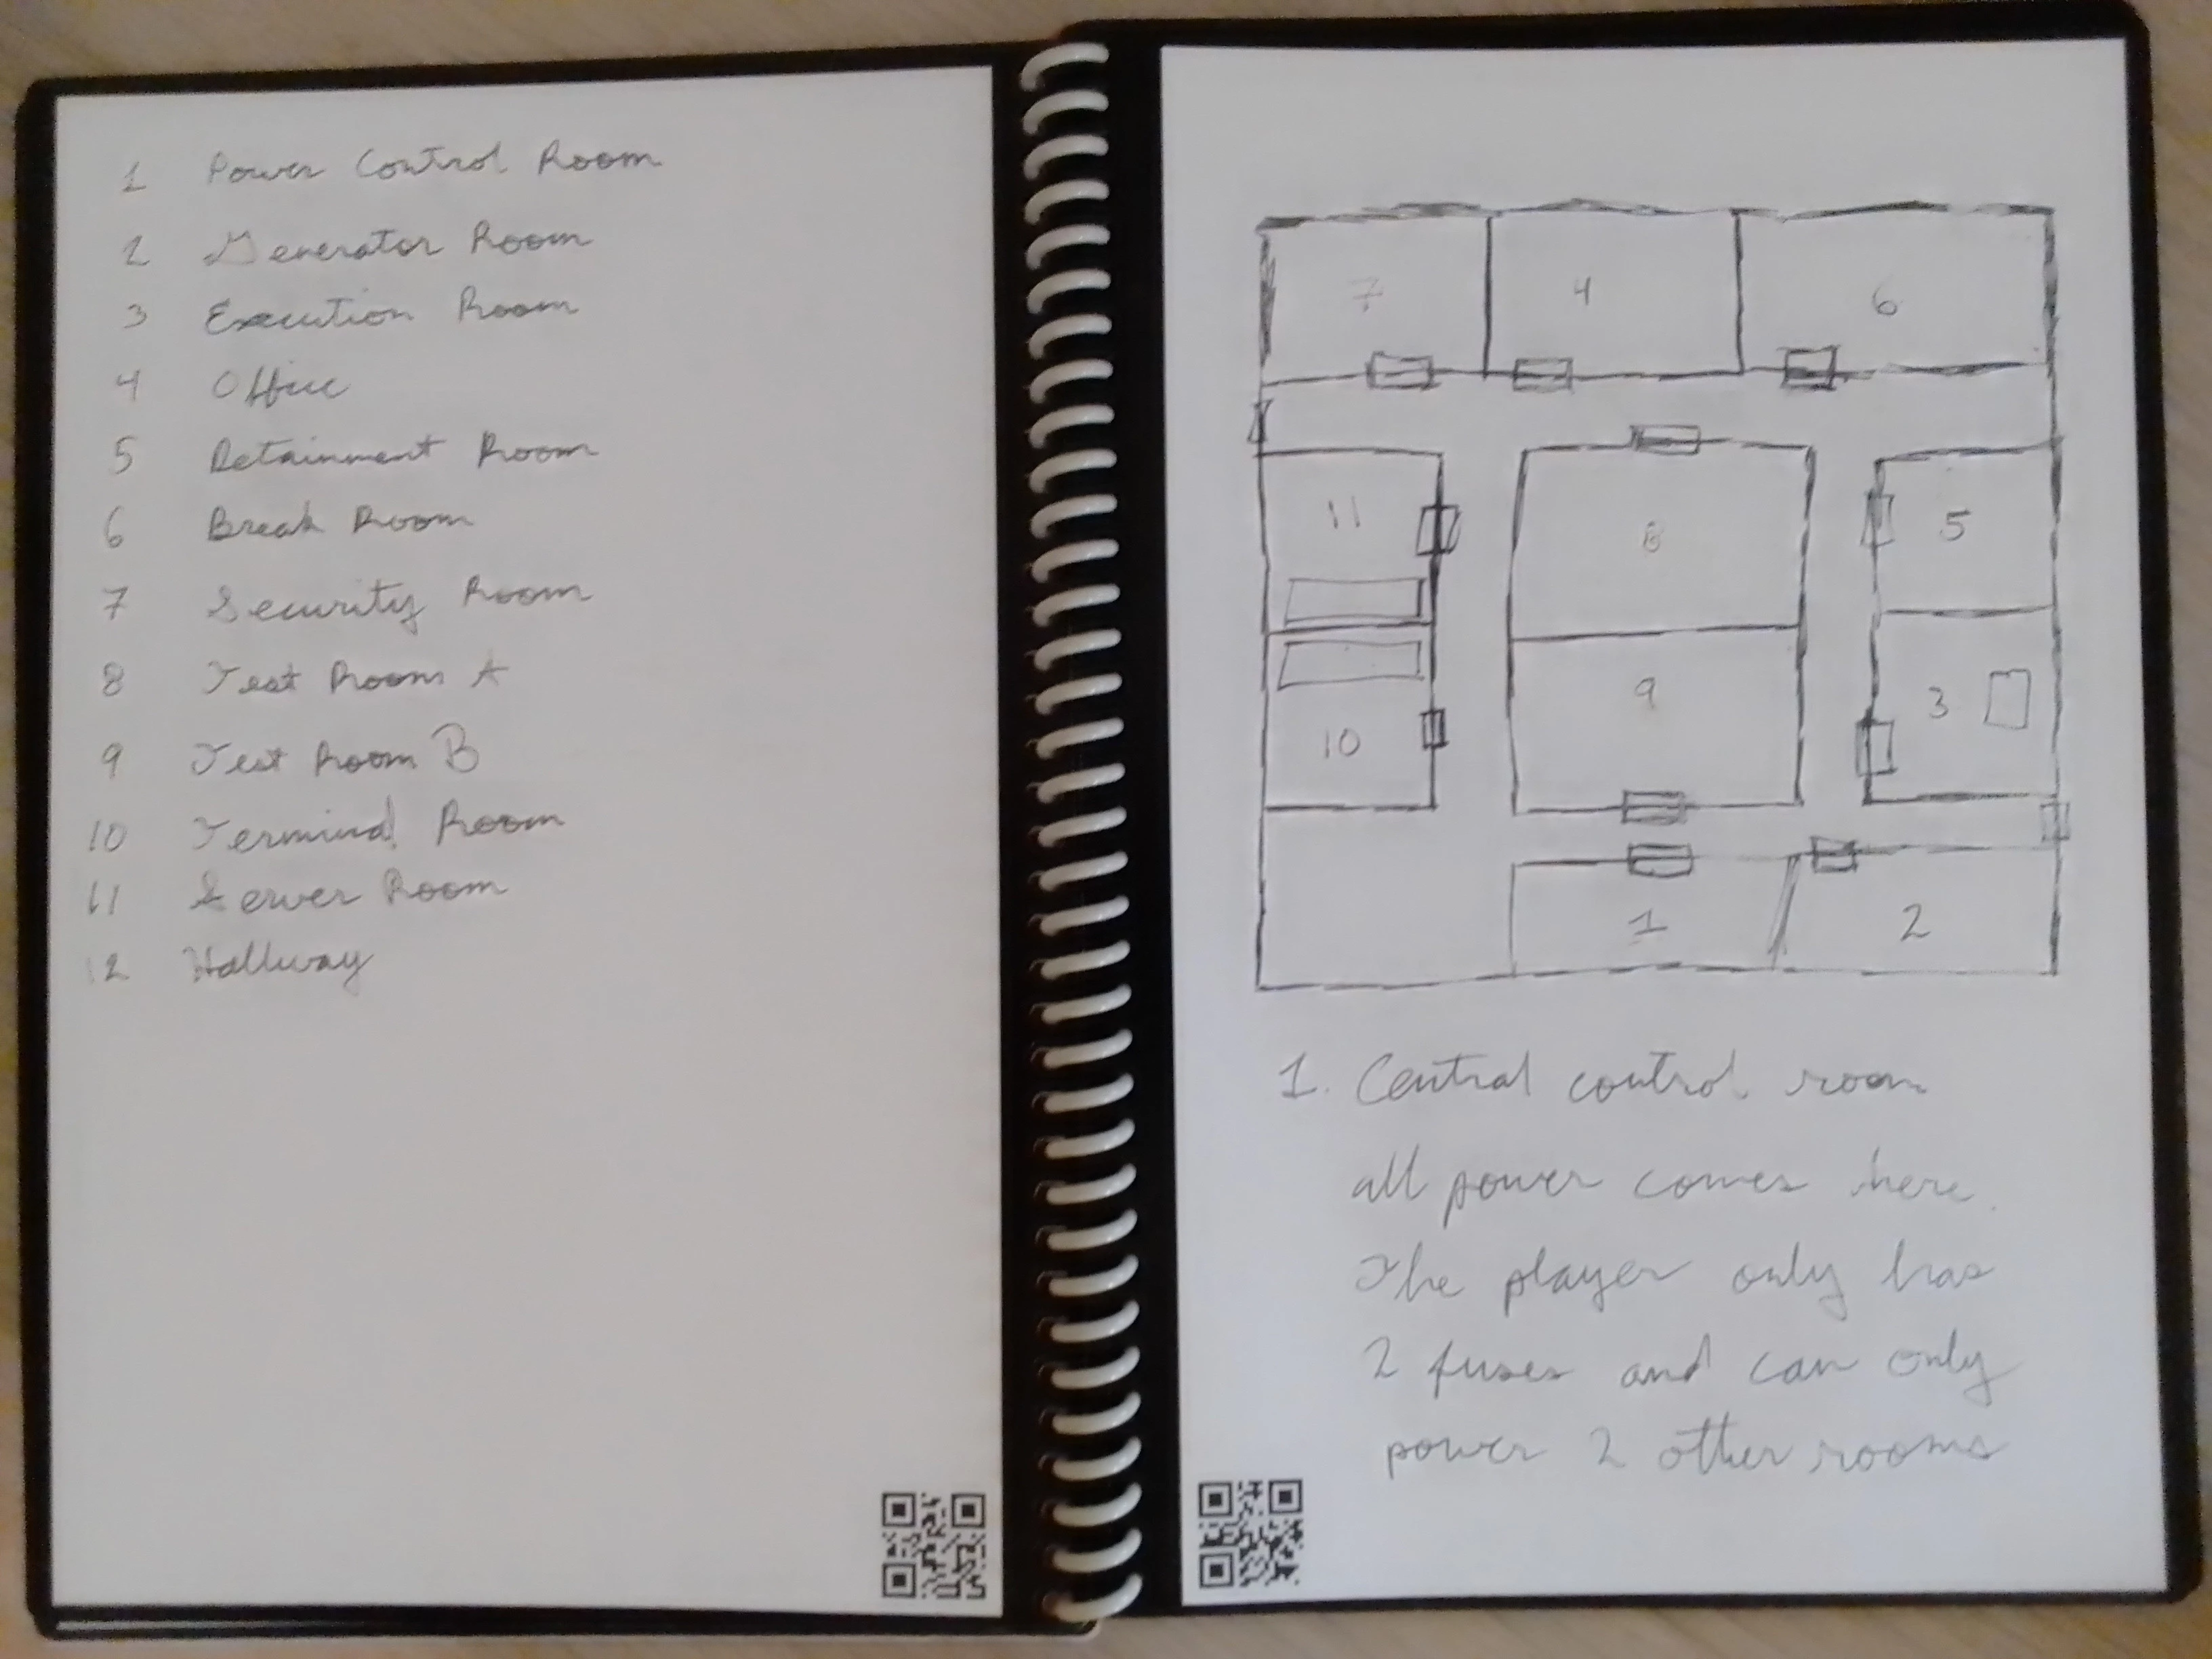 1 Power Control Room
2 Generator Room
3 Execution Room
4 Office
5 Retainment Room
6 Break Room
7 Security Room
8 Test Room A
9 Test Room B
10 Terminal Room
11 Server Room
12 Hallway
7 4 6
11 8 5
10 9 3
1 2
1. Central control room
all power comes here.
The player only has
2 fuses and can only
power 2 other rooms